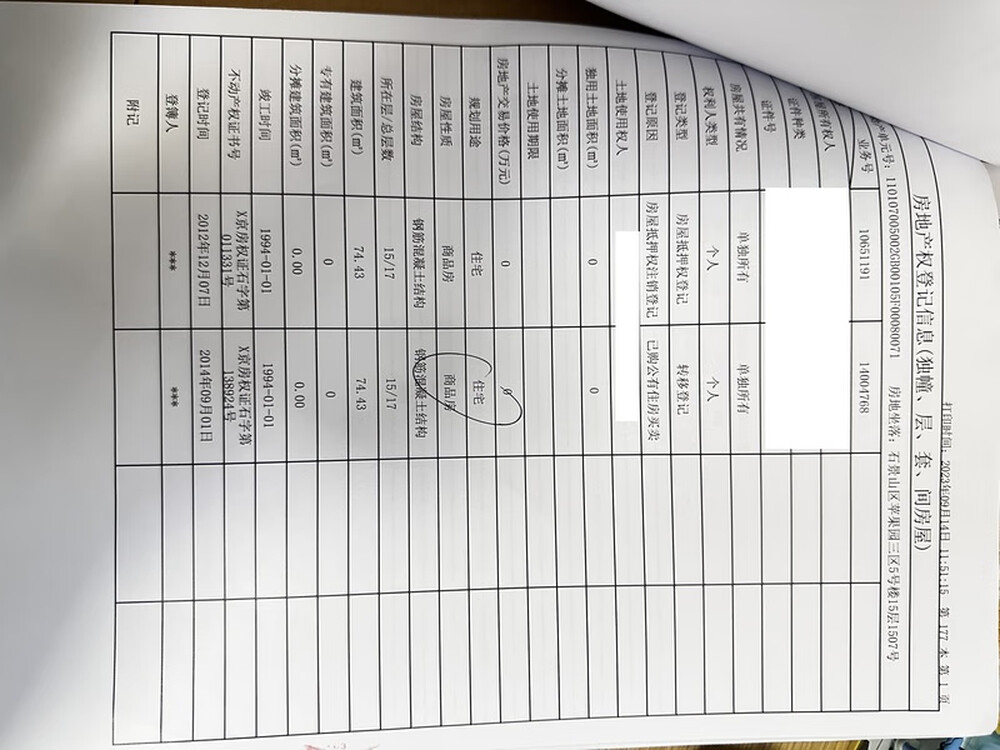 打印时间：2023年09月14日 11:51:15 第 177 本 第 1 页
房地产权登记信息(独幢、层、套、间房屋)
单元号：110107005002GB00105F00080071 房地坐落：石景山区苹果园三区5号楼15层1507号
业务号 10651191 14004768
房屋所有权人
证件种类
证件号
房屋共有情况 单独所有 单独所有
权利人类型 个人 个人
登记类型 房屋抵押权登记 转移登记
登记原因 房屋抵押权注销登记 已购公有住房买卖
土地使用权人
独用土地面积(㎡) 0 0
分摊土地面积(㎡)
土地使用期限
房地产交易价格(万元) 0 0
规划用途 住宅 住宅
房屋性质 商品房 商品房
房屋结构 钢筋混凝土结构 钢筋混凝土结构
所在层/总层数 15/17 15/17
建筑面积(㎡) 74.43 74.43
专有建筑面积(㎡) 0 0
分摊建筑面积(㎡) 0.00 0.00
竣工时间 1994-01-01 1994-01-01
不动产权证书号 X京房权证石字第011331号 X京房权证石字第138924号
登记时间 2012年12月07日 2014年09月01日
登簿人 *** ***
附记